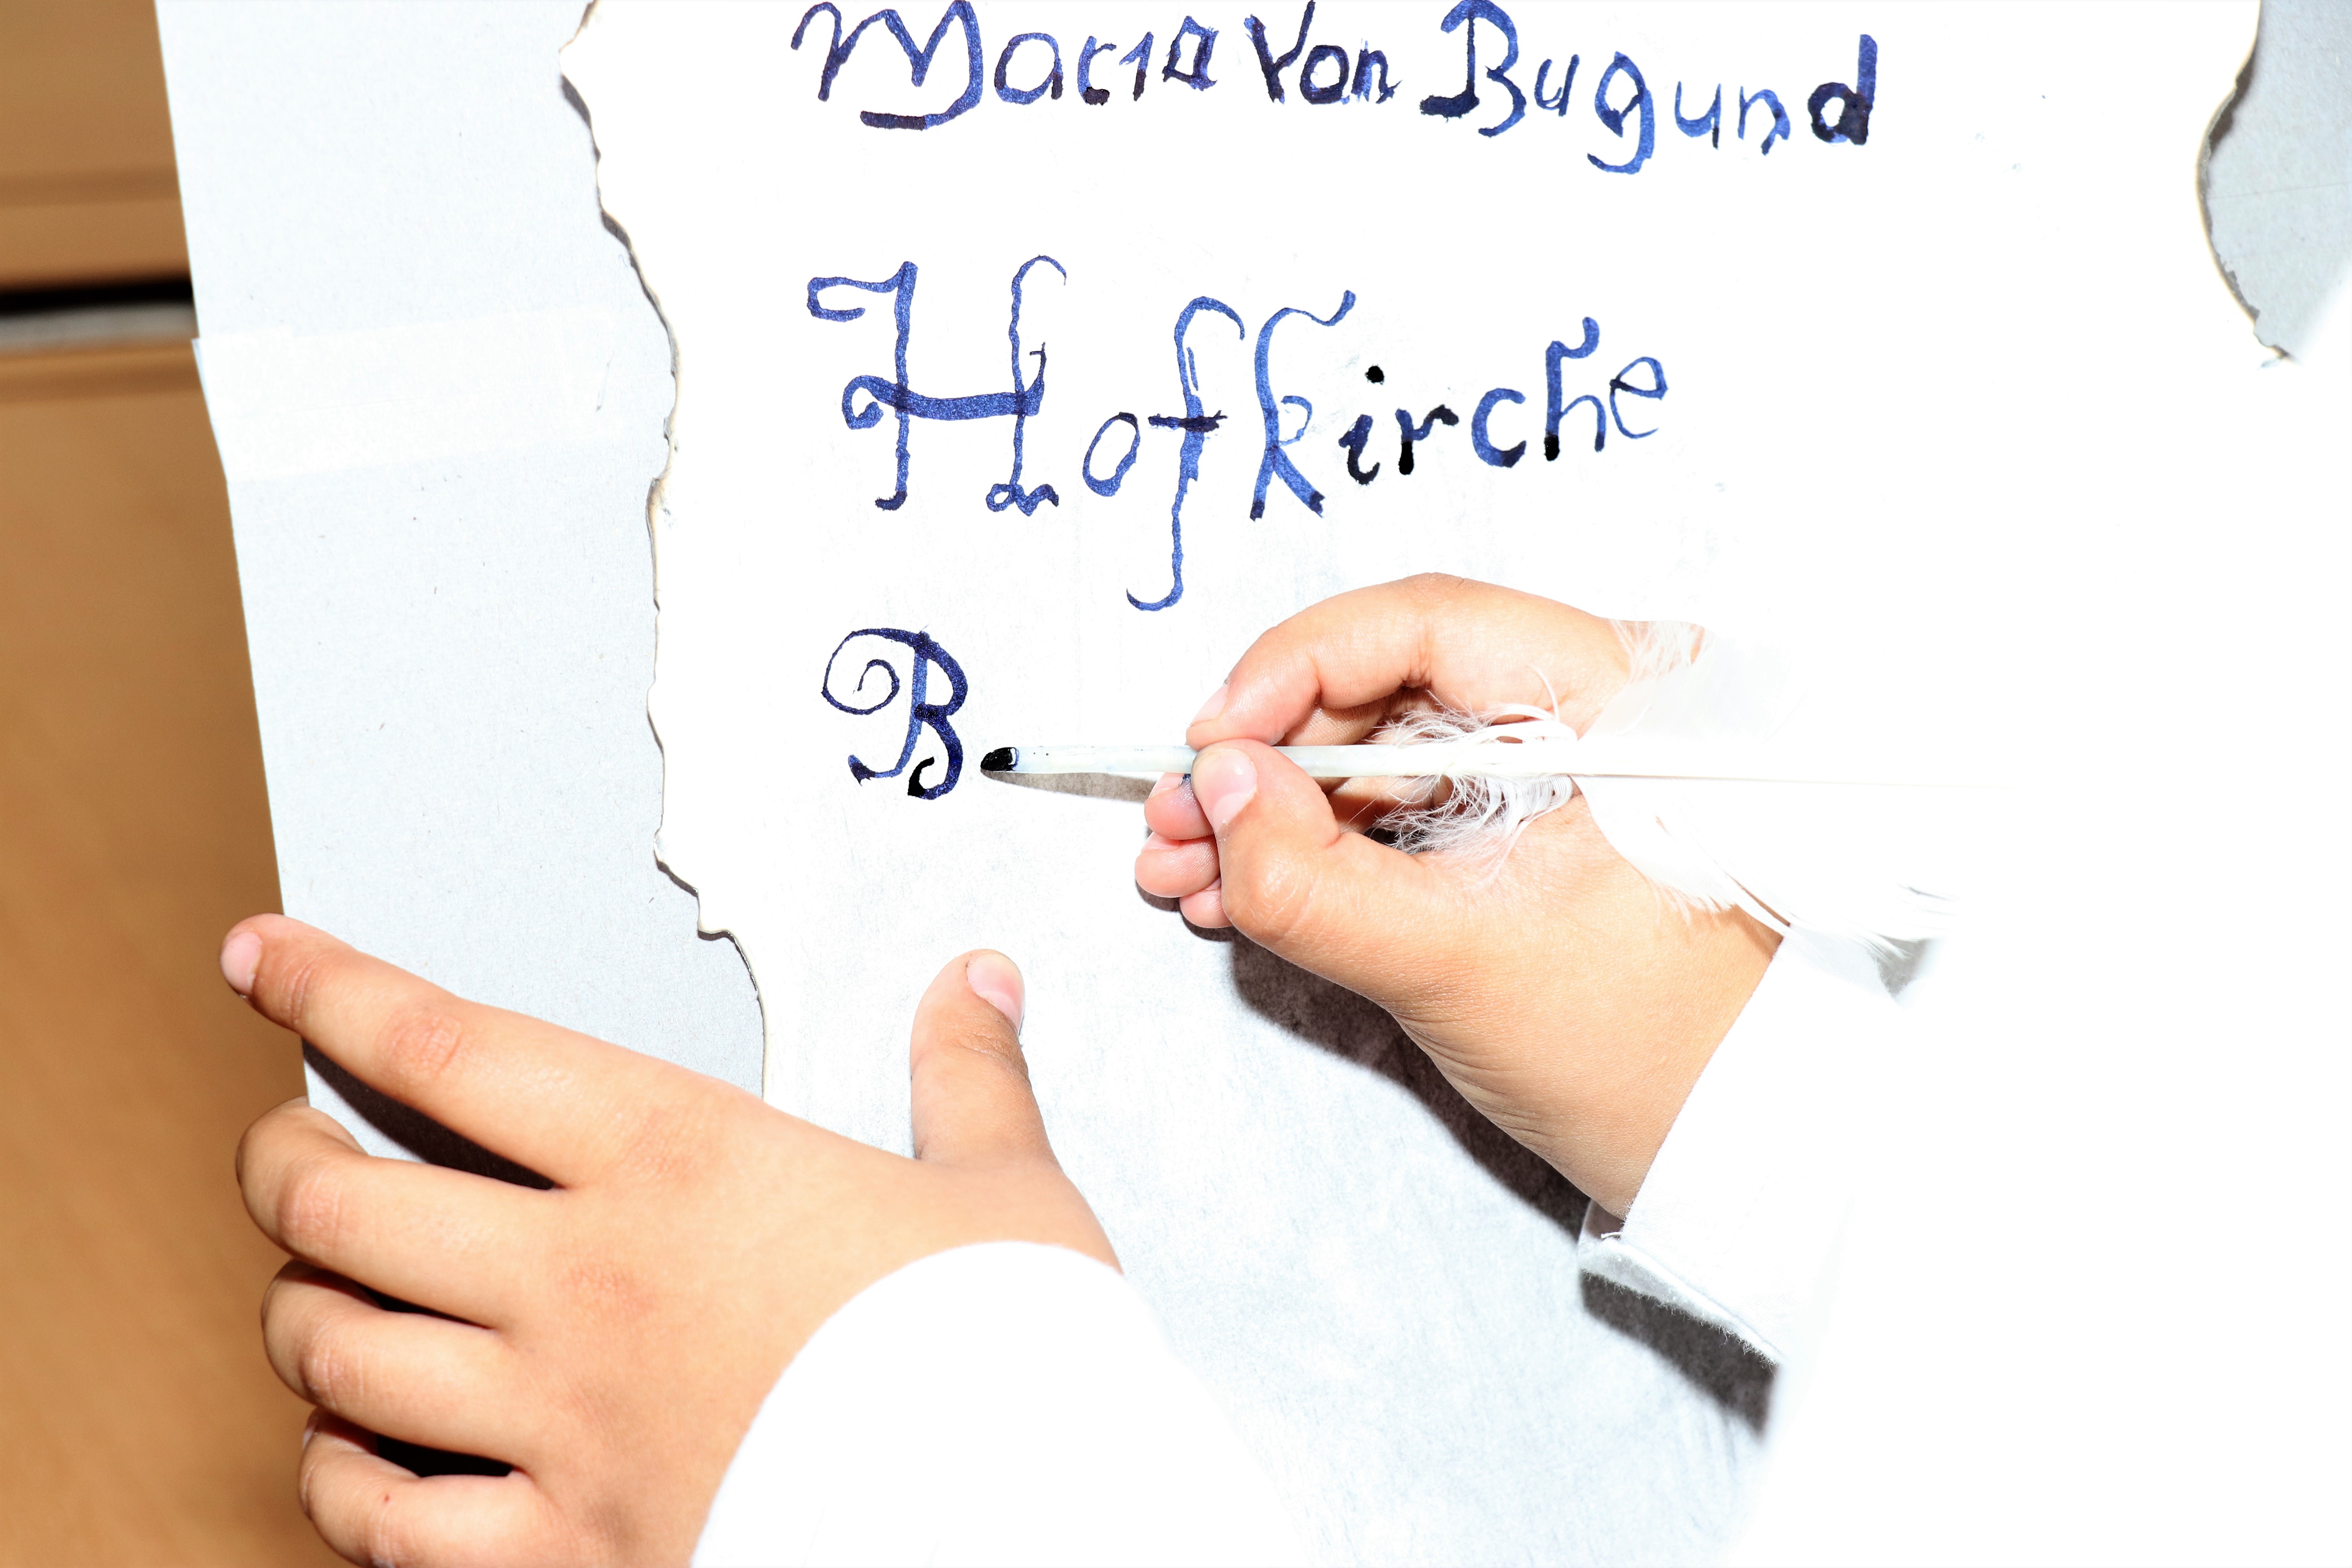 Maria Von Bugund
Hofkirche
B